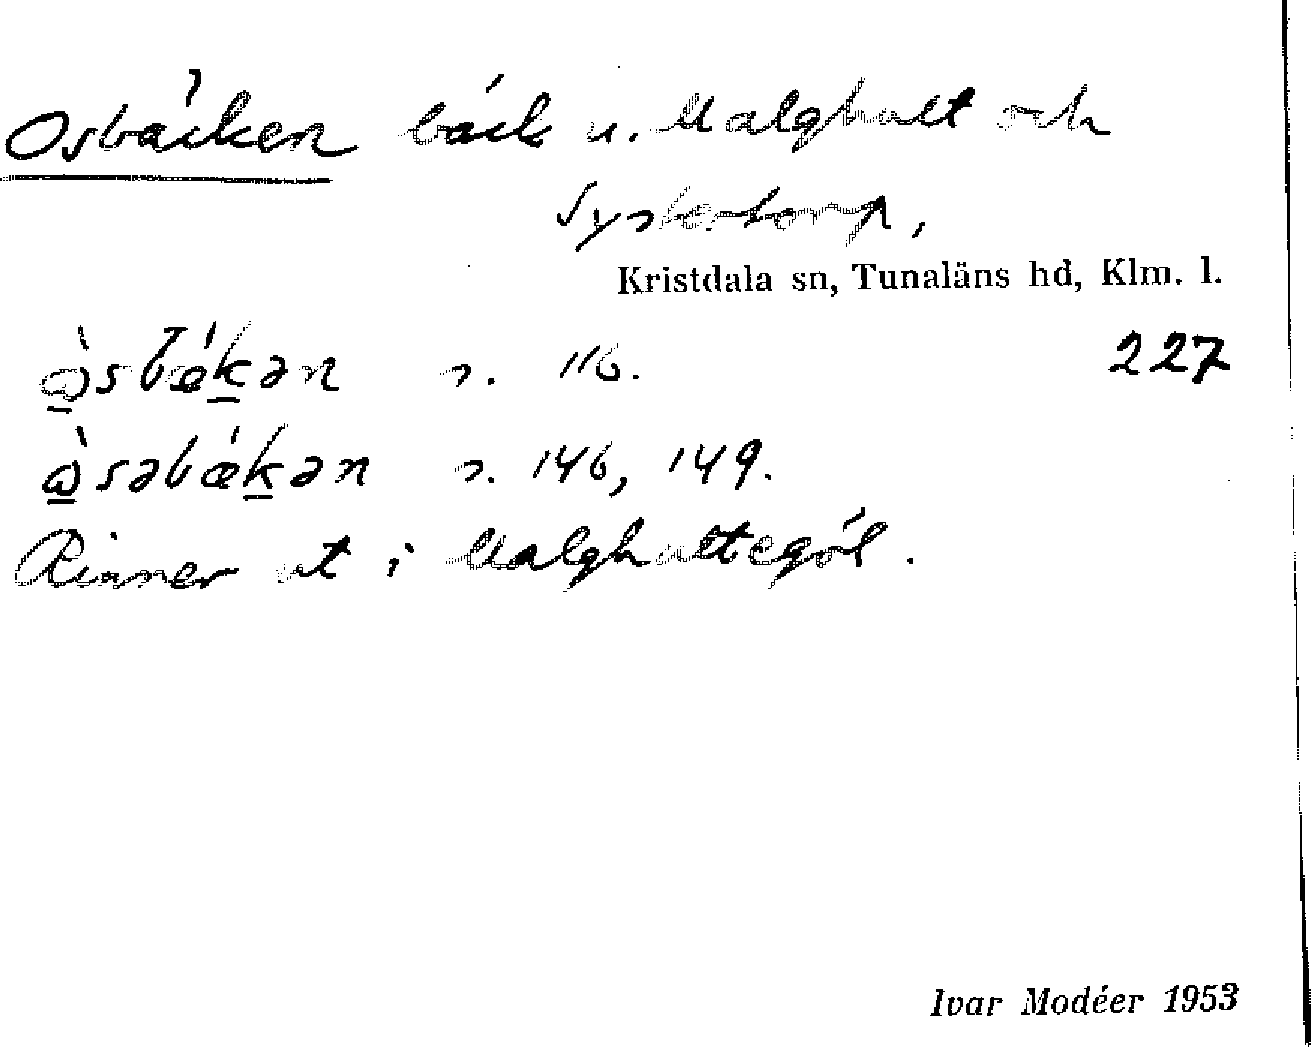 Osbäcken bäck u. Malghult och
Systertorp,
Kristdala sn, Tunaläns hd, Klm. l.
ò̱sbǽḵən s. 116. 227
ò̱səbǽḵən s. 146, 149.
Rinner ut i Malghultegöl.
Ivar Modéer 1953